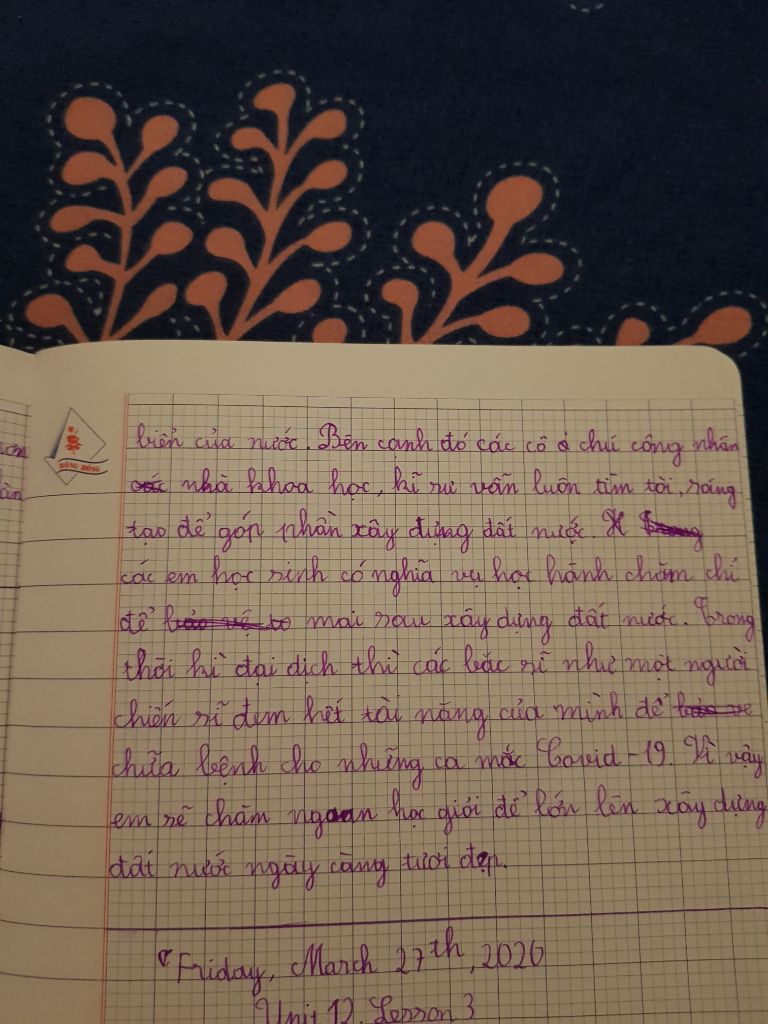 biển của nước. Bên cạnh đó các cô chú công nhân
nhà khoa học, kĩ sư vẫn luôn tìm tòi, sáng
tạo để góp phần xây dựng đất nước.
các em học sinh có nghĩa vụ học hành chăm chỉ
để mai sau xây dựng đất nước. Trong
thời kì đại dịch thì các bác sĩ như một người
chiến sĩ đem hết tài năng của mình để
chữa bệnh cho những ca mắc Covid-19. Vì vậy
em sẽ chăm ngoan học giỏi để lớn lên xây dựng
đất nước ngày càng tươi đẹp.
Friday, March 27th, 2026
Unit 12. Lesson 3
HỒNG HÀ